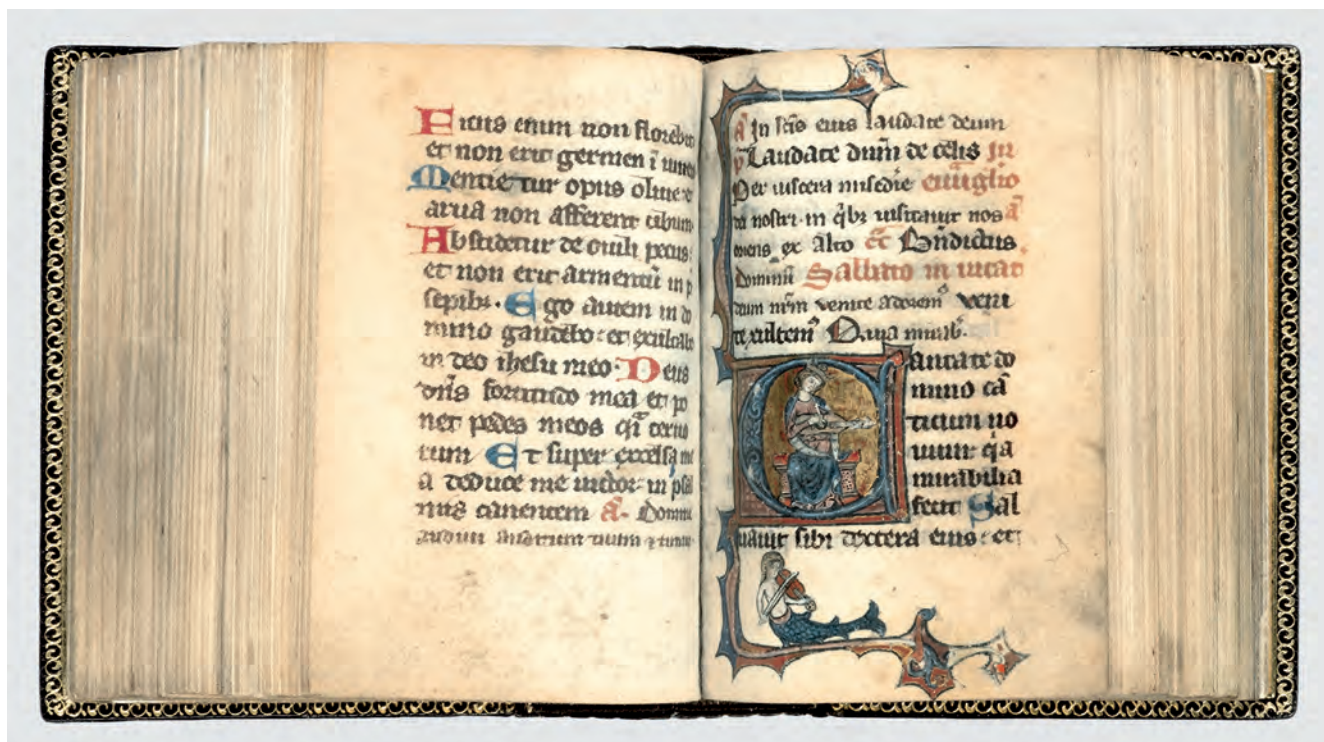 Ficus enim non floreb
et non erit germen ī uine
Mentietur opus oliue et
arua non afferent cibum
Abscidetur de ouili pecus:
et non erit armentū in p
sepibꝫ. Ego autem in do
mino gaudebo: et exultabo
in deo ihesu meo. Deus
dn̄s fortitudo mea et po
net pedes meos q̄i ceruo
rum Et super excelsa me
a deducet me uictor in psal
mis canentem ā. Domine
audiui auditum tuum et timui
ā In sc̄is eius laudate deum
p̄ Laudate dūm de celis in
Per uiscera misc̄die euuāglio
dei nostri in q̄bꝫ uisitauit nos ā
oriens ex alto c̄t B̄ndictus
dominū Sabbato in
deum nr̄m venite adorem᷒ veni
te exultem᷒ Quia mirab.
Cantate do
mino cā
ticum no
uum q̄a
mirabilia
fecit Sal
uauit sibi dextera eius: et